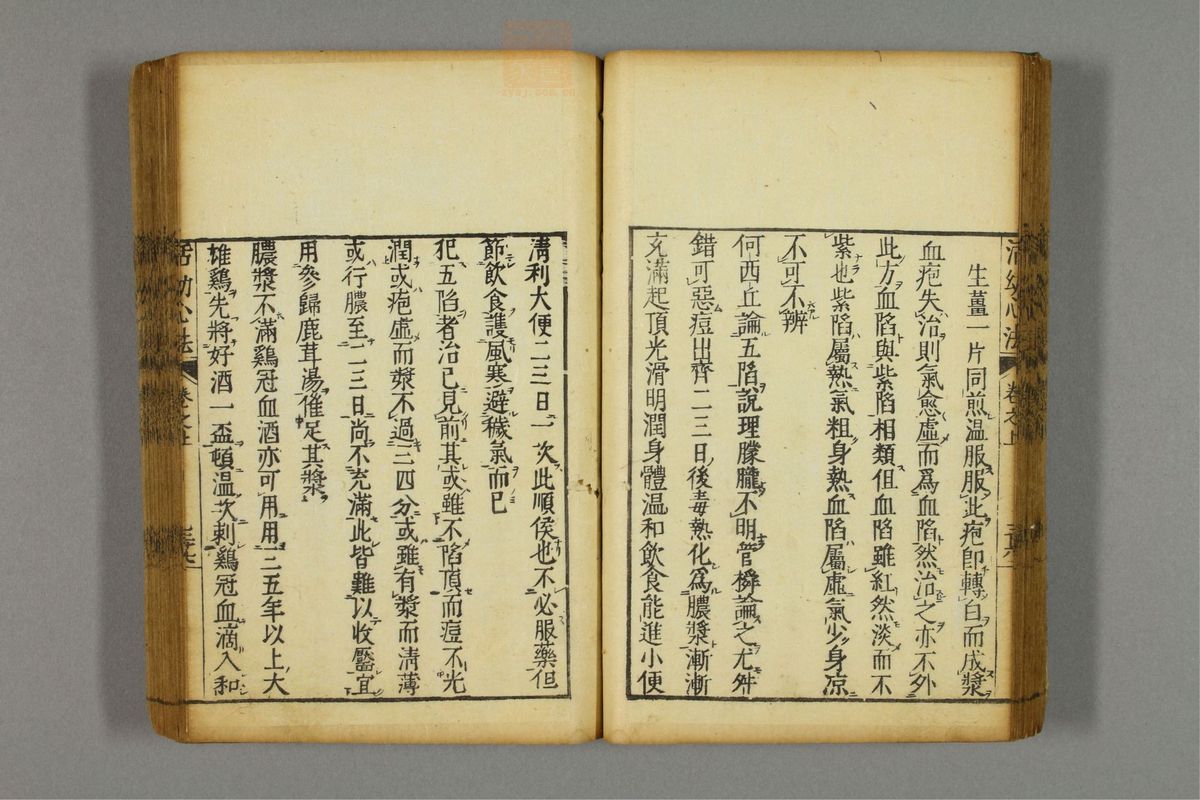 生薑一片同煎温服服此疱卽轉白而成漿
血疱失治則氣愈虛而爲血陷然治之亦不外
此方血陷與紫陷相類但血陷雖紅然淡而不
紫也紫陷屬熱氣粗身熱血陷屬虛氣少身凉
不可不辨
何西丘論五陷說理朦朧不明管橓論之尤舛
錯可惡痘出齊二三日後毒熱化爲膿漿漸漸
充滿起頂光滑明潤身體温和飲食能進小便
清利大便二三日一次此順候也不必服藥但
節飲食護風寒避穢氣而已
犯五陷者治已見前其或雖不陷頂而痘不光
潤或疱虛而漿不過三四分或雖有漿而清薄
或行膿至二三日尚不充滿此皆難以收靨宜
用參歸鹿茸湯催足其漿
膿漿不滿鷄冠血酒亦可用用三五年以上大
雄鷄先將好酒一盃頓温次剌鷄冠血滴入和
活幼心法 卷之上
活幼心法 卷之上
zysj.com.cn